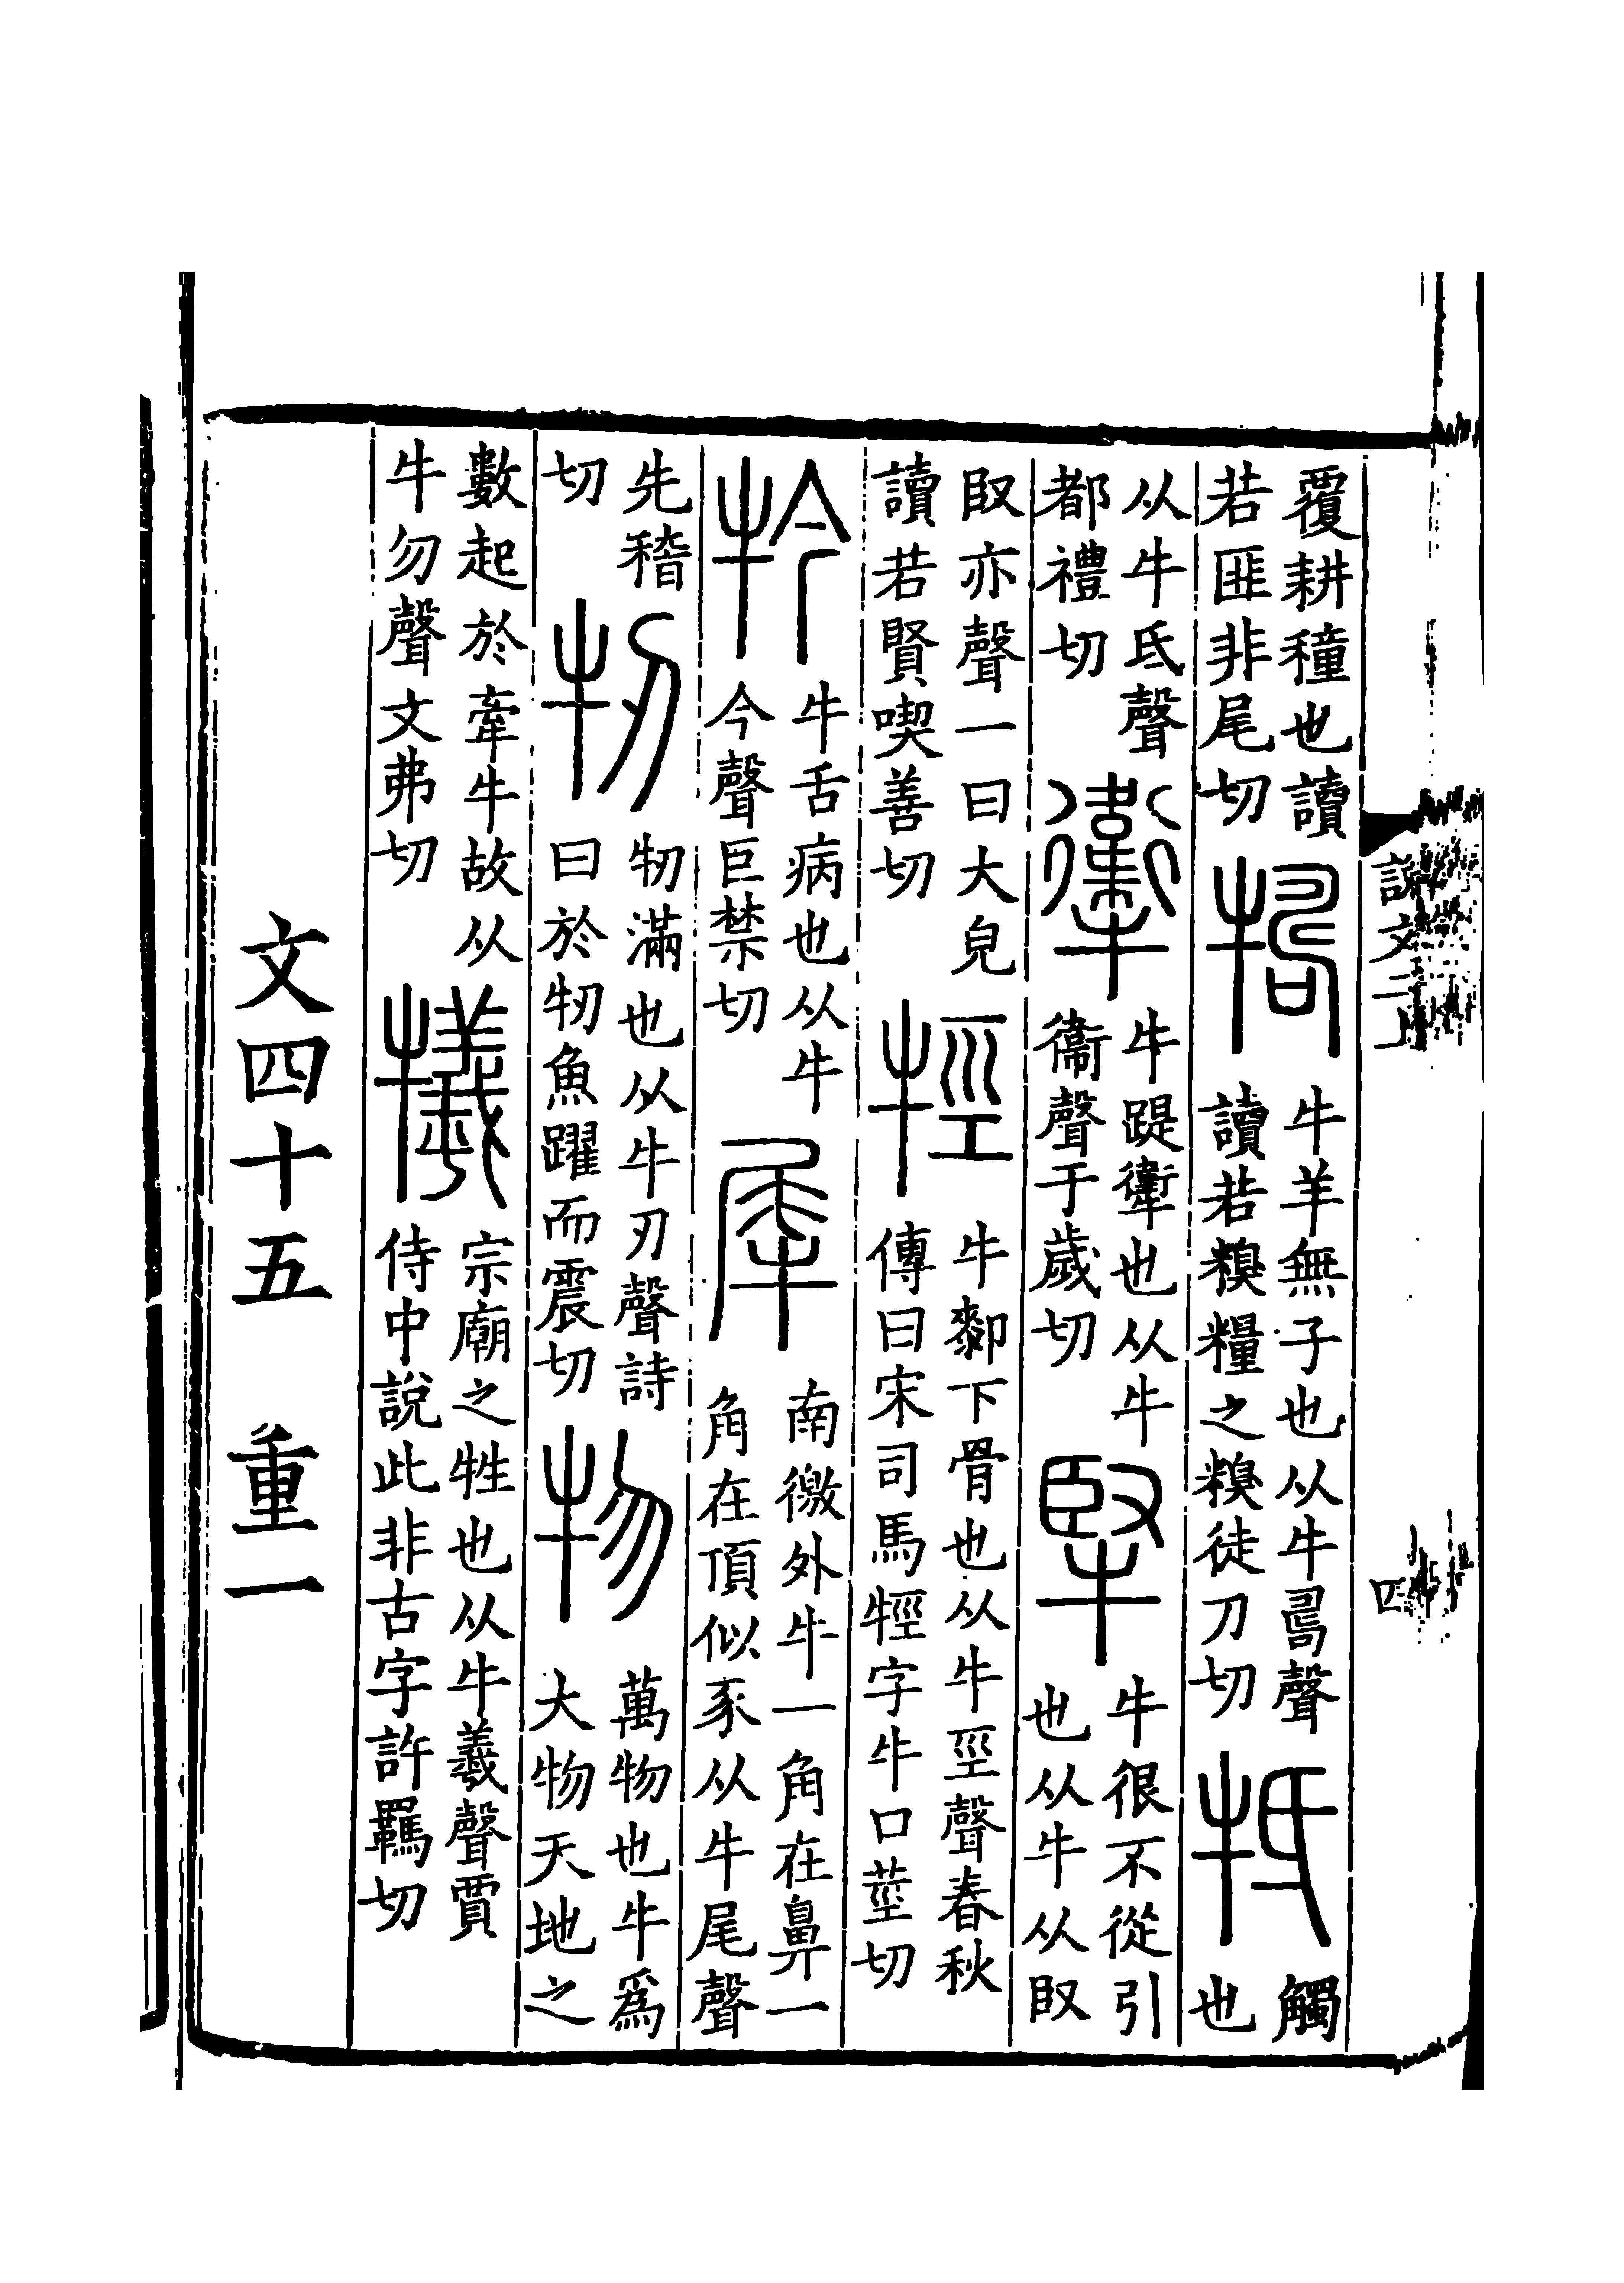 說文二上 四
覆耕穜也讀若匪非尾切 𤚟 牛羊無子也从牛𠷎聲讀若糗糧之糗徒刀切 牴 觸也
从牛氐聲都禮切 𤜂 牛踶𤜂也从牛衞聲于歲切 㹂 牛很不從引也从牛从臤
臤亦聲一曰大皃讀若賢喫善切 牼 牛厀下骨也从牛巠聲春秋傳曰宋司馬牼字牛口莖切
㸧 牛舌病也从牛今聲巨禁切 犀 南徼外牛一角在鼻一角在頂似豕从牛尾聲
先稽切 牣 牣滿也从牛刃聲詩曰於牣魚躍而震切 物 萬物也牛爲大物天地之
數起於牽牛故从牛勿聲文弗切 犧 宗廟之牲也从牛羲聲賈侍中說此非古字許羈切
文四十五 重一